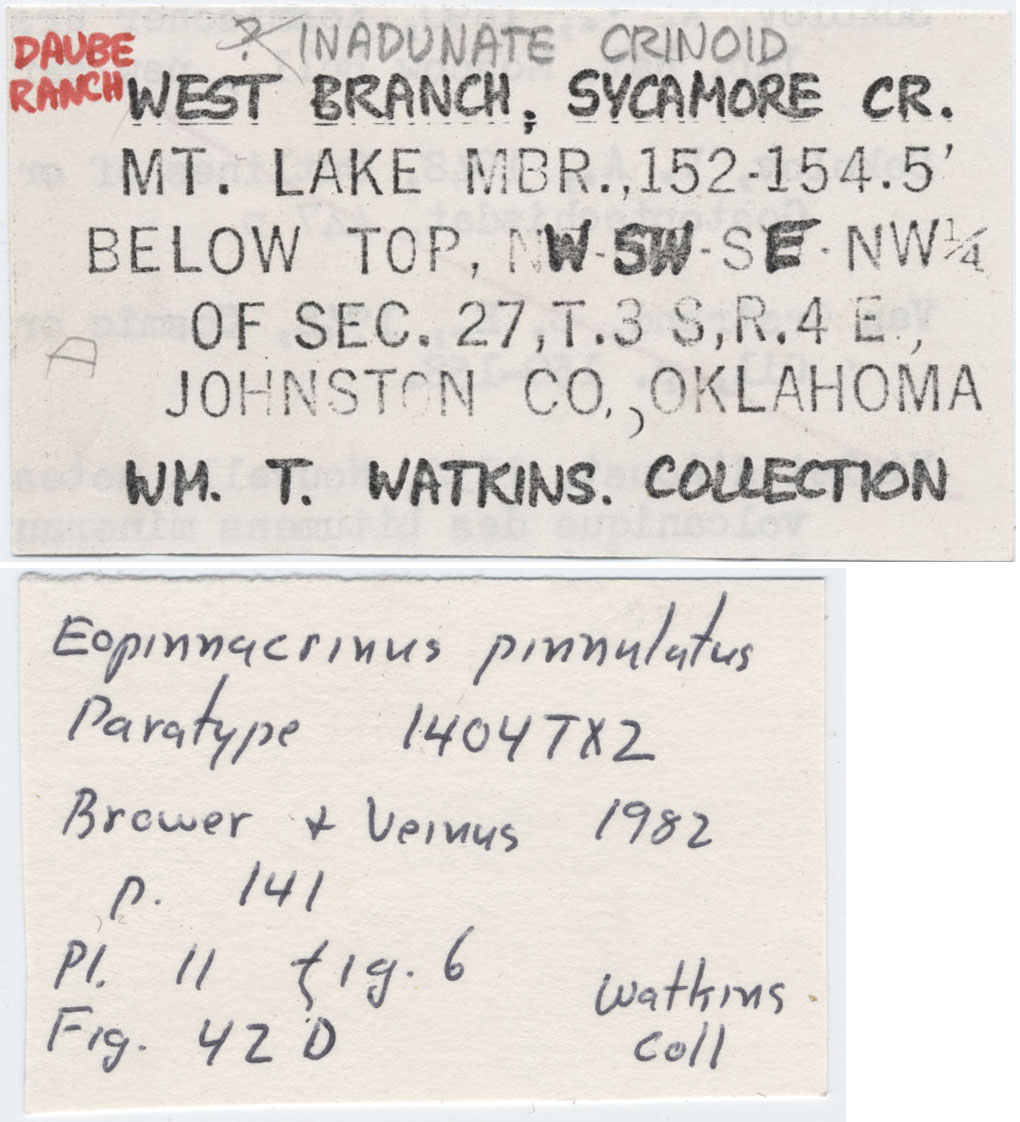 ? INADUNATE CRINOID
DAUBE
RANCH
WEST BRANCH, SYCAMORE CR.
MT. LAKE MBR.,152-154.5'
BELOW TOP, NW-SW-SE-NW¼
OF SEC. 27,T.3 S,R.4 E.,
D
JOHNSTON CO., OKLAHOMA
WM. T. WATKINS. COLLECTION
Eopinnacrinus pinnulatus
Paratype 1404TX2
Brower & Veinus 1982
p. 141
Pl. 11 fig. 6
Fig. 42 D
Watkins
Coll